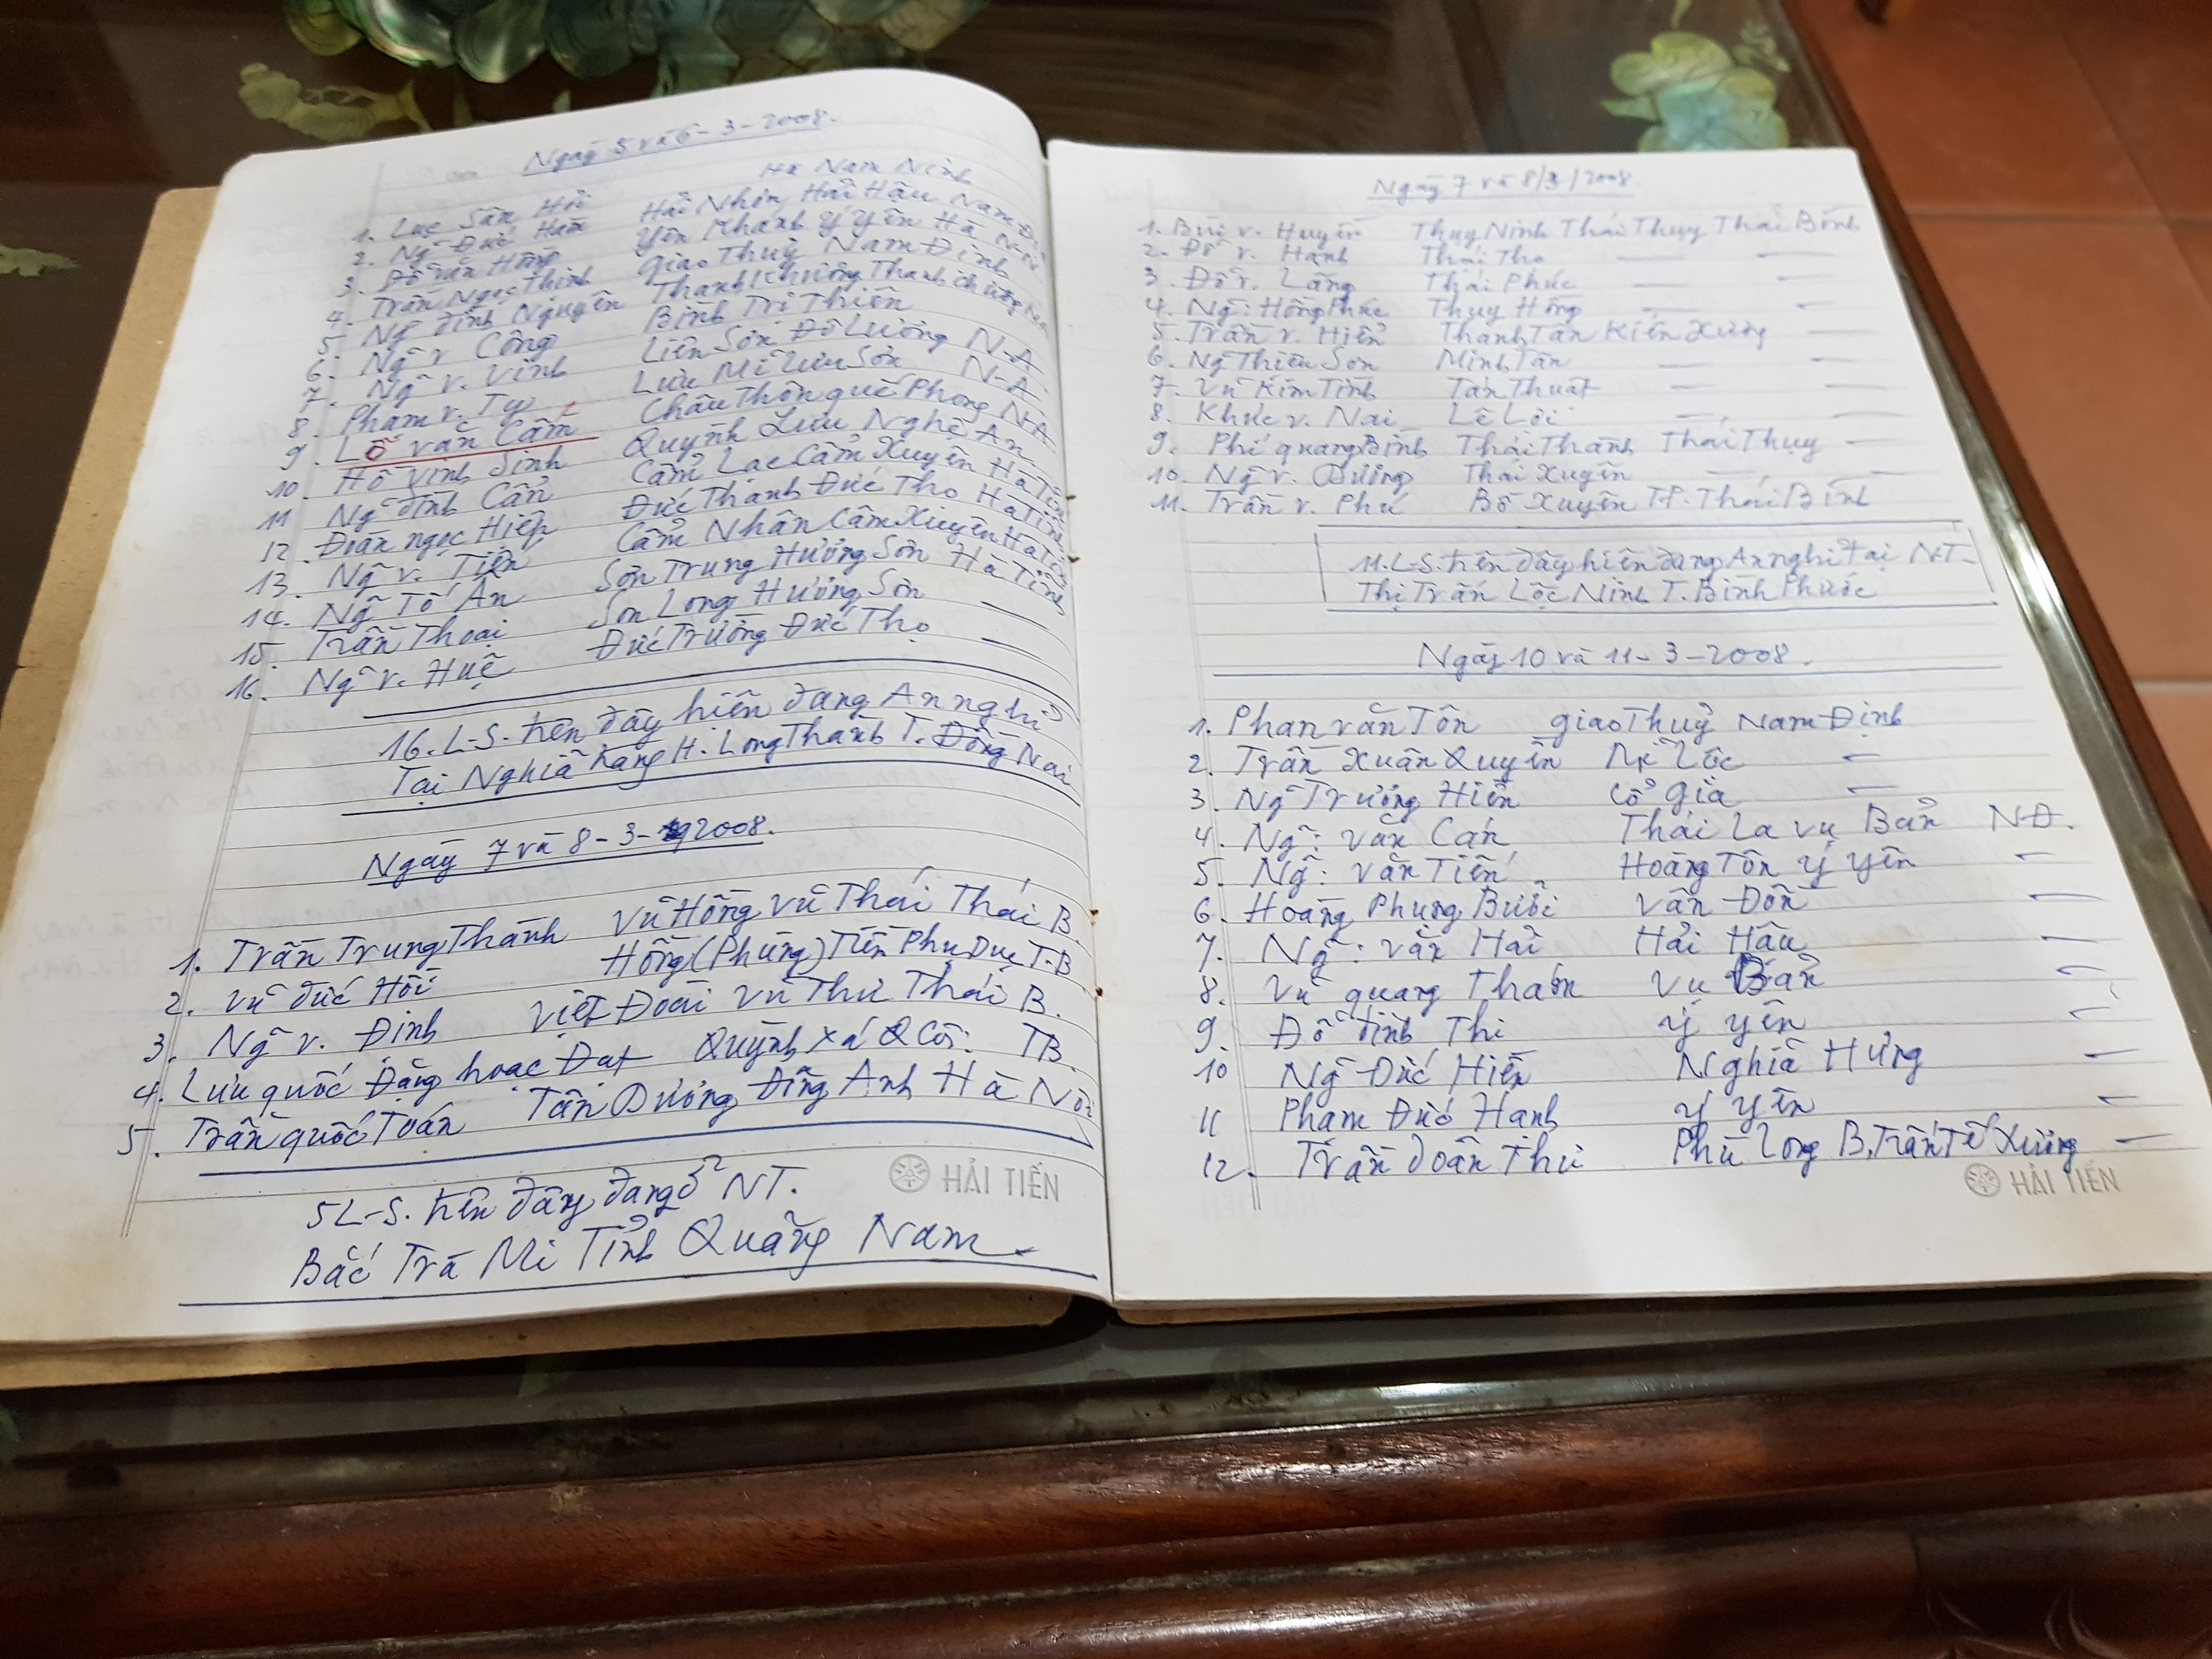 Ngày 5 và 6-3-2008.
Hà Nam Ninh
1. Lục Sân Hồi
2. Ng~ Đức Hám Hải Nhân Hải Hậu Nam Đị
3. Đỗ văn Hồng Yên Khánh Ý Yên Hà N-N
4. Trần Ngọc Thinh Giao Thuỷ Nam Định
5. Ng~ đình Nguyên Thanh Chương Thanh chương
6. Ng~ v Công Bình Trị Thiên
7. Ng~ v. Vinh Liên Sơn Đô Lương N-A
8. Phạm v. Tự Lưu Mĩ Lưu Sơn N-A
9. Lô văn Cầm Châu Thôn quế Phong N-A
10 Hồ Vinh Sinh Quỳnh Lưu Nghệ An
11 Ng~ đình Cẩn Cẩm Lạc Cẩm Xuyên Hà Tĩnh
12. Đoàn ngọc Hiệp Đức Thanh Đức Thọ Hà Tĩnh
13. Ng~ v. Tiến Cẩm Nhân Cẩm Xuyên Hà Tĩnh
14. Ng~ Tố Ấn Sơn Trung Hương Sơn Hà Tĩnh
15. Trần Thoại Sơn Long Hương Sơn —
16. Ng~ v. Huệ Đức Trường Đức Thọ —
16. L-S. trên đây hiện đang An nghỉ
Tại Nghĩa trang H. Long Thành T. Đồng Nai
Ngày 7 và 8-3-2008.
1. Trần Trung Thành Vũ Hồng Vũ Thái Thái B.
2. Vũ đức Hồi Hồng (Phùng) Tiến Phụ Dực T-B
3. Ng~ v. Định Việt Đoài Vũ Thư Thái B.
4. Lưu quốc Đặng hoặc Đạt Quỳnh xá Q Côi: TB.
5. Trần quốc Toán Tân Dương Đông Anh Hà Nội
5 L-S. trên đây đang ở NT.
Bắc Trà Mi Tỉnh Quảng Nam.
HẢI TIẾN
Ngày 7 và 8/3/2008.
1. Bùi v. Huyên Thụy Ninh Thái Thụy Thái Bình
2. Đỗ v. Hạnh Thái Thọ — —
3. Đỗ v. Lãng Thái Phúc — —
4. Ng~: Hồng Phúc Thụy Hồng — —
5. Trần v. Hiển Thanh Tân Kiến Xương —
6. Ng~ Thiên Sơn Minh Tân — —
7. Vũ Kim Tính Tán Thuật — —
8. Khúc v. Nai Lê Lợi — —
9. Phí quang Bính Thái Thành Thái Thụy —
10. Ng~ v. Dương Thái Xuyên — —
11. Trần v. Phú Bồ Xuyên T.P. Thái Bình
11. L-S. trên đây hiện đang An nghỉ tại N.T-
Thị Trấn Lộc Ninh T. Bình Phước
Ngày 10 và 11-3-2008.
1. Phan văn Tôn Giao Thuỷ Nam Định
2. Trần Xuân Quyền Mĩ Lộc —
3. Ng~ Trương Hiển Cổ Gia —
4. Ng~: Văn Cán Thái La vụ Bản NĐ.
5. Ng~: văn Tiến Hoàng Tôn Ý Yên —
6. Hoàng Phụng Buồi Vân Đồn —
7. Ng~: văn Hải Hải Hậu —
8. Vũ quang Tham Vụ Bản —
9. Đỗ đình Thi Ý Yên —
10 Ng~ Đức Hiền Nghĩa Hưng —
11 Phạm Đức Hạnh Ý Yên —
12. Trần doãn Thư Phù Long B, Trần Tế Xương —
HẢI TIẾN